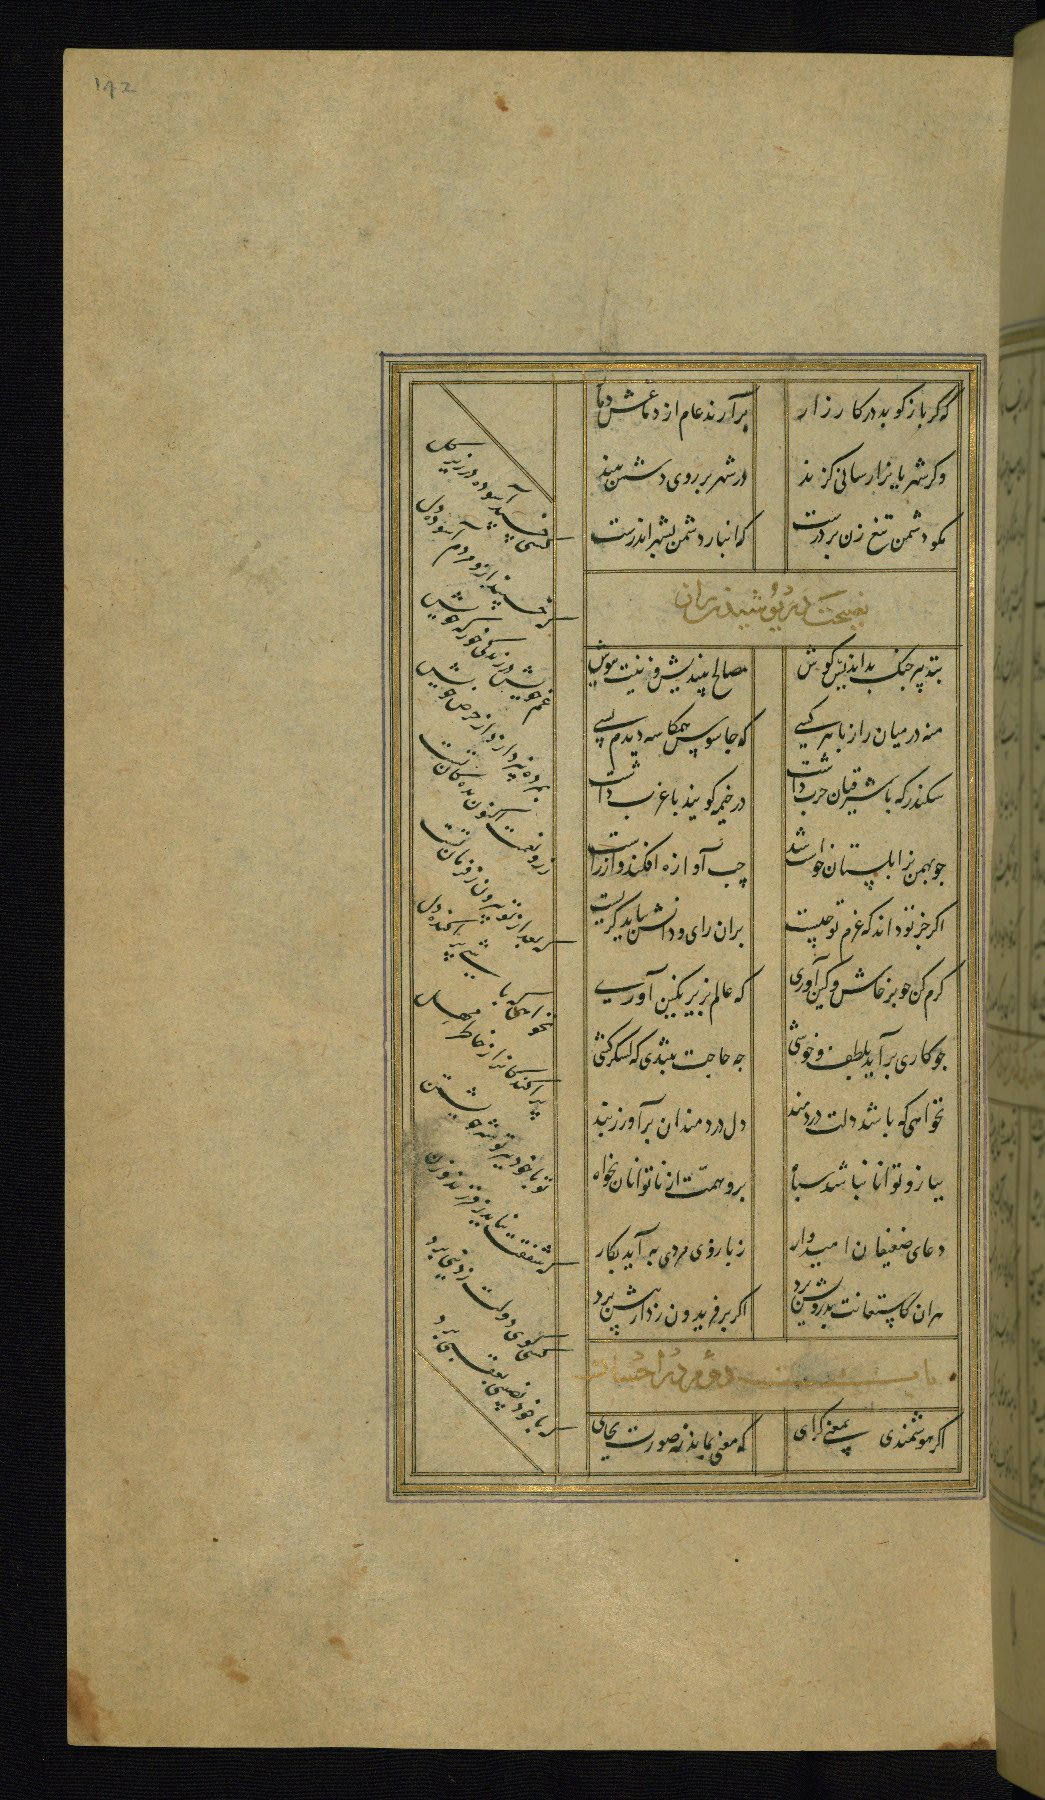 ۱۴۲
که گر باز کوبد در کارزار
برآرند عام از دماغش دمار
وکر شهریانرا رسانی کزند
در شهر بر روی دشمن مبند
مکو دشمن تیغ زن بر درست
که انبار دشمن بشهر اندرست
نصیحت در پوشیدن راز
بتدبیر جنک بداندیش کوش
مصالح بیندیش و نیت بپوش
منه در میان راز با هر کسی
که جاسوس همکاسه دیدم بسی
سکندر که با شرقیان حرب داشت
در خیمه کویند با غرب داشت
چو بهمن بزابلستان خواست شد
چپ آوازه افکند و از راست شد
اکر جز تو داند که عزم تو چیست
بران رای و دانش بباید کریست
کرم کن جو پرخاش و کین آوری
که عالم بزیر نکین آوری
جو کاری برآید بلطف و خوشی
جه حاجت بتندی و کردن کشی
نخواهی که باشد دلت دردمند
دل دردمندان برآور ز بند
ببازو توانا نباشد سپاه
برو همت از ناتوانان بخواه
دعای ضعیفان امیدوار
ز بازوی مردی به آید بکار
هران کاستعانت بدرویش برد
اکر بر فریدون زد از پیش برد
باب دوم در احسان
اکر هوشمندی بمعنی کرای
که معنی بماند نه صورت بجای
کسی خسبد آسوده در زیر کل
که خسبند ازو مردم آسوده دل
غم خویش در زندکی خور که خویش
بمرده نپردازد از حرص خویش
زر و نعمت اکنون بده کان تست
که بعد از تو بیرون ز فرمان تست
نخواهی که باشی پراکنده دل
پراکندکانرا ز خاطر مهل
تو با خود ببر توشه خویشتن
که شفقت نیاید ز فرزند و زن
کسی کوی دولت ز دنیا برد
که با خود نصیبی بعقبی برد